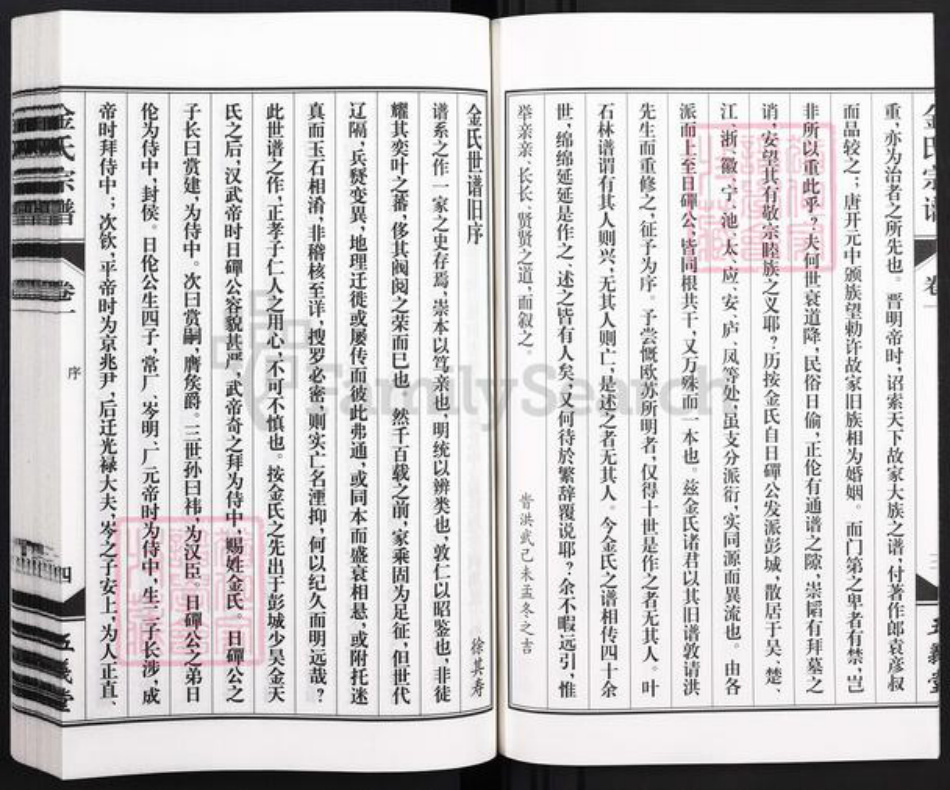 重，亦为治者之所先也。晋明帝时，诏索天下故家大族之谱，付著作郎袁彦叔
而品较之；唐开元中颁族望勅许故家旧族相为婚姻。而门第之卑者有禁，岂
非所以重此乎？夫何世衰道降，民俗日偷，正伦有通谱之隙，崇韬有拜墓之
诮，安望其有敬宗睦族之义耶？历按金氏自日磾公发派彭城，散居于吴、楚、
江、浙、徽、宁、池、太、应、安、庐、凤等处，虽支分派衍，实同源而異流也。由各
派而上至日磾公，皆同根共干，又万殊而一本也。兹金氏诸君以其旧谱敦请洪
先生而重修之，征予为序。予尝慨欧苏所明者，仅得十世是作之者无其人。叶
石林谱谓有其人则兴，无其人则亡，是述之者无其人。今金氏之谱相传四十余
世，绵绵延延是作之、述之皆有人矣，又何待於繁辞覆说耶？余不暇远引，惟
举亲亲、长长、贤贤之道，而叙之。
旹洪武己未孟冬之吉
金氏世谱旧序
徐其寿
谱系之作一家之史存焉，崇本以笃亲也，明统以辨类也，敦仁以昭鉴也，非徒
耀其奕叶之蕃，侈其阀阅之荣而已也。然千百载之前，家乘固为足征，但世代
辽隔，兵燹变異，地理迁徙或屡传而彼此弗通，或同本而盛衰相悬，或附托迷
真而玉石相淆，非稽核至详，搜罗必密，则实亡名湮抑，何以纪久而明远哉？
此世谱之作，正孝子仁人之用心，不可不慎也。按金氏之先出于彭城少昊金天
氏之后，汉武帝时日磾公容貌甚严，武帝奇之拜为侍中，赐姓金氏。日磾公之
子长曰赏建，为侍中。次曰赏嗣，膺矦爵。三世孙曰祎，为汉臣。日磾公之弟曰
伦为侍中，封侯。日伦公生四子，常厂、岑明、厂元帝时为侍中，生三子长涉，成
帝时拜侍中；次钦，平帝时为京兆尹，后迁光禄大夫，岑之子安上，为人正直、
金氏宗谱
卷一
序
四
五義堂
FamilySearch